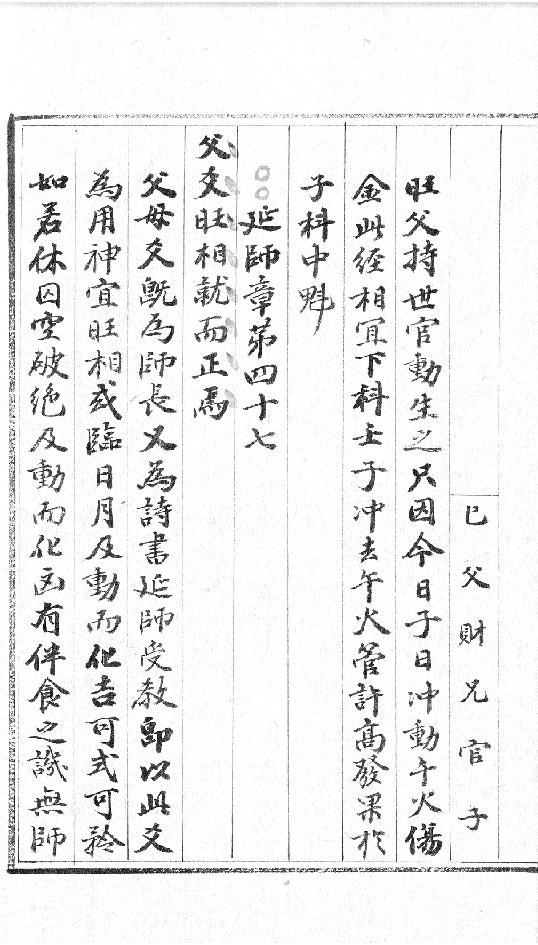 巳父財兄官子
旺父持世官動生之只因今日子日冲動午火傷
金此經相宜下科壬子冲去午火管許高發果於
子科中魁
延師章第四十七
父爻旺相就而正焉
父母爻旣為師長又為詩書延師受教即以此爻
為用神宜旺相或臨日月及動而化吉可式可矜
如若休囚空破絶及動而化凶有伴食之譏無師